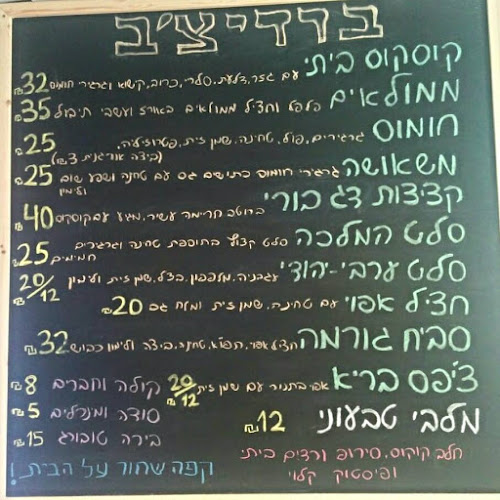 ברדיצ'ב
קוסקוס ביתי עם גזר, דלעת, סלרי, כרוב, קישוא וגרגירי חומוס 32₪
ממולאים פלפל וחציל ממולאים באורז ועשבי תיבול 35₪
חומוס גרגירים, פול, טחינה, שמן זית, פטרוזיליה, 25₪
(ביצה אורגנית 3₪)
משאושה גרגירי חומוס כתושים גס עם טחנה ושפע שום 25₪
ולימון
קציצות דג בורי ברוטב חריימה עשיר, מגיע עם קוסקוס 40₪
סלט המלכה סלט קצוץ בתוספת טחנה וגרגרים 25₪
חמימים
סלט ערבי-יהודי עגבניה, מלפפון, בצל, שמן זית ולימון 20/12₪
חציל אפוי עם טחינה, שמן זית ומלח גס 20₪
סביח גורמה חציל אפוי, תפו"א, טחנה, ביצה ולימון כבוש 32₪
צ'יפס בריא אפוי בתנור עם שמן זית 20/12₪
קולה וחברים 8₪
מלבי טבעוני 12₪
סודה ומינרלים 5₪
חלב קוקוס, סירופ ורדים ביתי
ופיסטוק קלוי
בירה טובורג 15₪
קפה שחור על הבית!